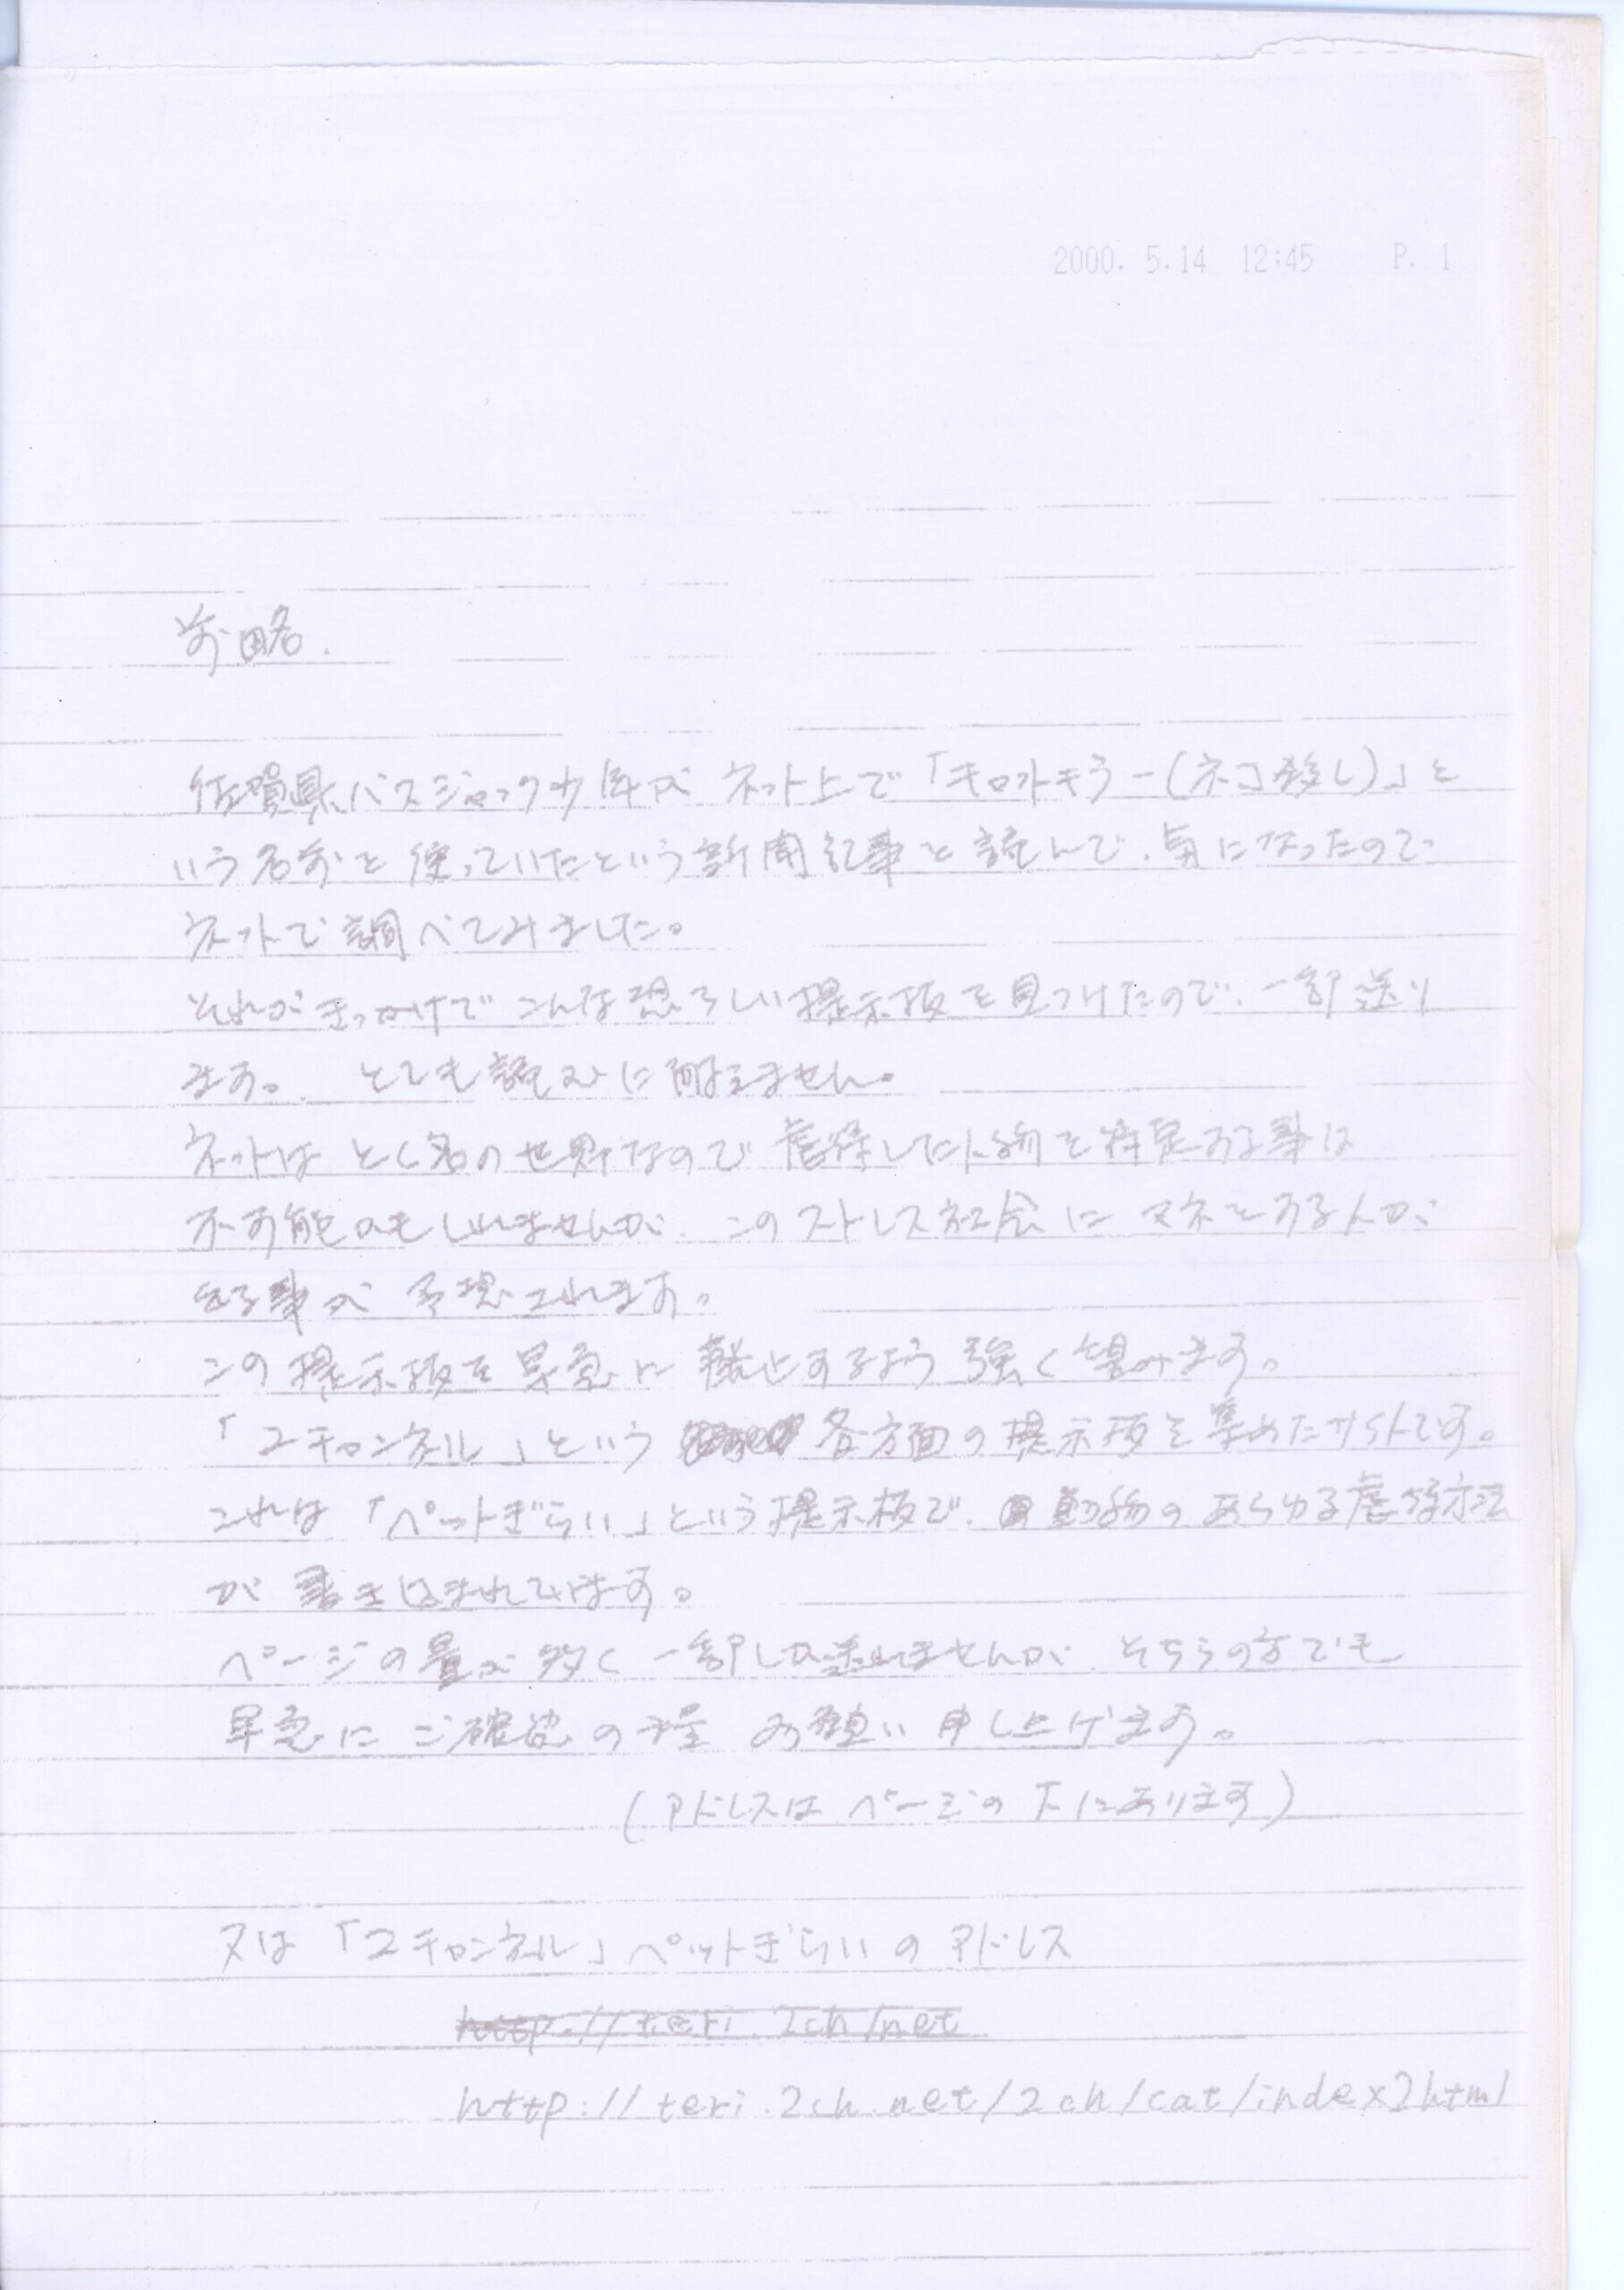 2000. 5.14 12:45 P. 1
前略.
佐賀県バスジャック少年が ネット上で「キャットキラー(ネコ殺し)」と
いう名前を使っていたという新聞記事を読んで、気になったので
ネットで調べてみました。
それがきっかけで こんな恐ろしい掲示板を見つけたので、一部送り
ます。 とても読みに耐えません。
ネットは とく名の世界なので 虐待した人物を特定する事は
不可能かもしれませんが、このストレス社会に マネをする人が
出る事が 予想されます。
この掲示板を早急に 廃止するよう 強く望みます。
「2チャンネル」という 各方面の掲示板を集めたサイトです。
これは「ペットぎらい」という掲示板で、動物のあらゆる虐待方法
が 書き込まれています。
ページの量が多く 一部しか送れませんが、そちらの方でも
早急に ご確認の程 お願い申し上げます。
(アドレスは ページの 下にあります)
又は「2チャンネル」ペットぎらいの アドレス
http://teri.2ch/net
http://teri.2ch.net/2ch/cat/index2html